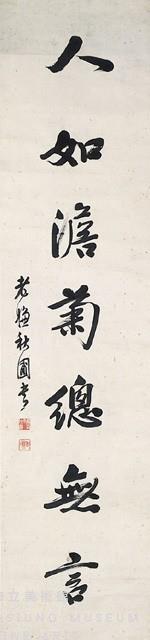 人如澹菊總無言
老嫌秋圃書
立美術館
HSIUNG MUSEUM